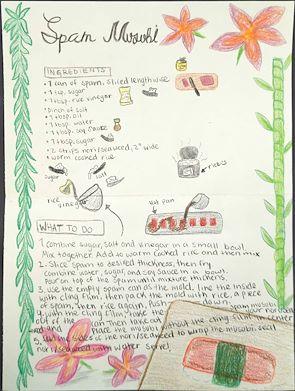 Spam Musubi
INGREDIENTS
• 1 can of spam, sliced lengthwise
• 1 cup. sugar
• 1 tbsp. rice vinegar
• pinch of salt
• 1 tbsp. oil
• 1 tbsp. water
• 1 tbsp. soy sauce
• 1 tbsp. sugar
• 2 strips nori/seaweed, 2" wide
• warm cooked rice
sugar
salt
rice
vinegar
hot pan
WHAT TO DO
1. combine sugar, salt and vinegar in a small bowl.
Mix together. Add to warm cooked rice and then mix
2. Slice spam to desired thickness, then fry.
Combine water, sugar, and soy sauce in a bowl.
Pour on top of the spam until mixture thickens.
3. use the empty spam can as the mold, line the inside
with cling film, then pack the mold with rice, a piece
of spam, then rice again. Push down.
4. with the cling film, take the spam musubi
out of the can. Then take out without the cling film
Place the musubi center
sides of the nori/seaweed to wrap the musubi. seal
nori/seaweed with water. Serve!